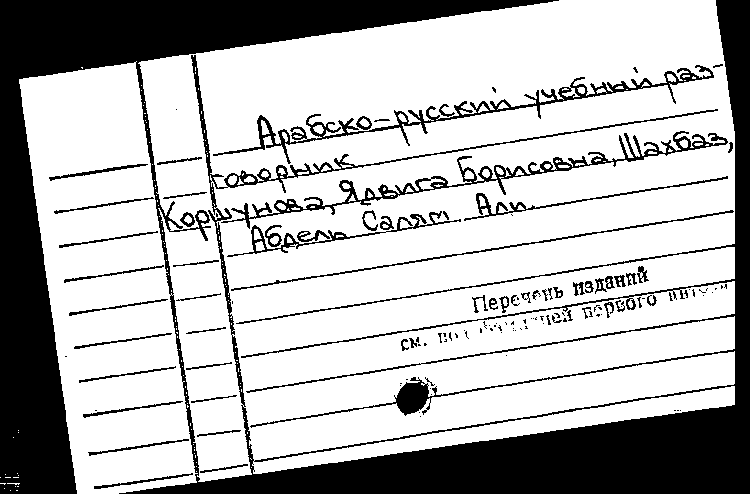 Арабско-русский учебный раз-
говорник
Коршунова, Ядвига Борисовна, Шахбаз,
Абдель Салям Али.
Перечень изданий
см. под фамилией первого автора